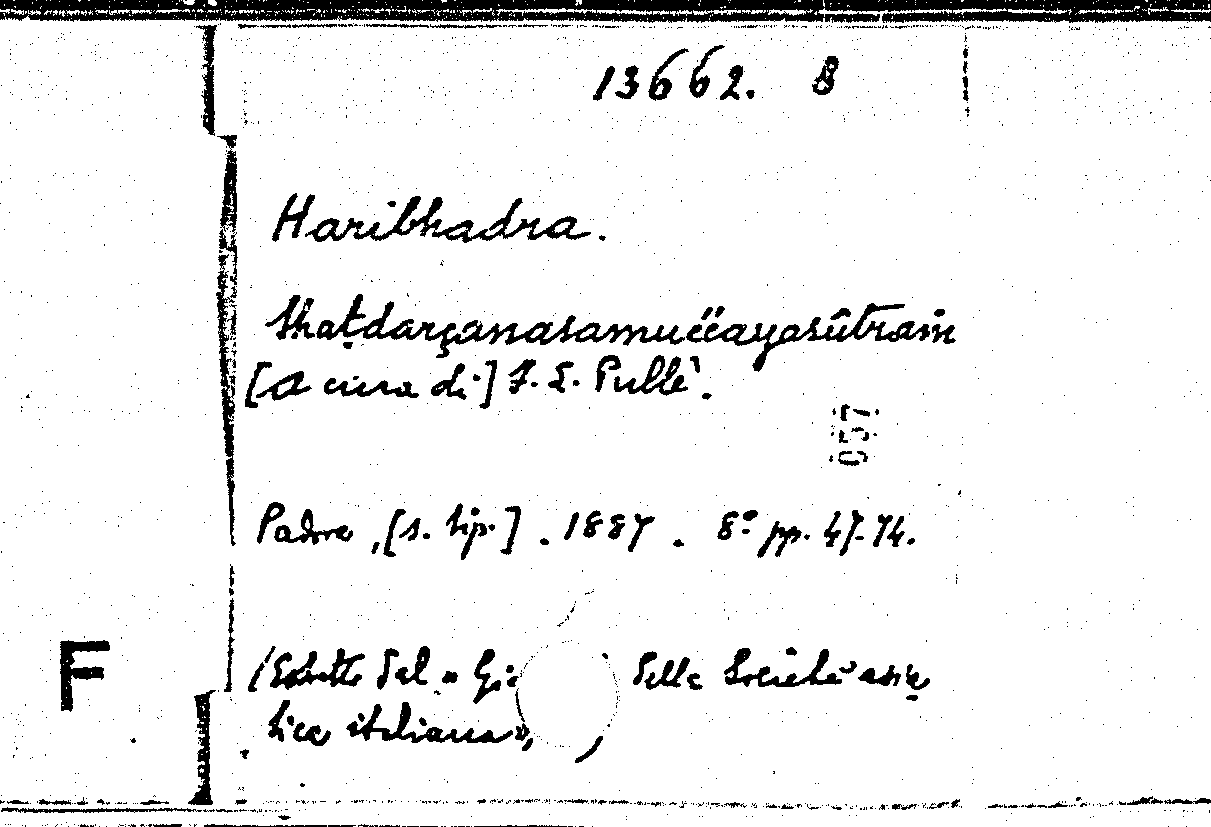 13662. B
Haribhadra.
Shaṭdarçanasamuččayasûtraṁ
[a cura di] F. L. Pullè.
057
Padova, [s. tip.]. 1887. 8º pp. 47-74.
F
(Estratto dal « Gi della Società asia
tica italiana», )